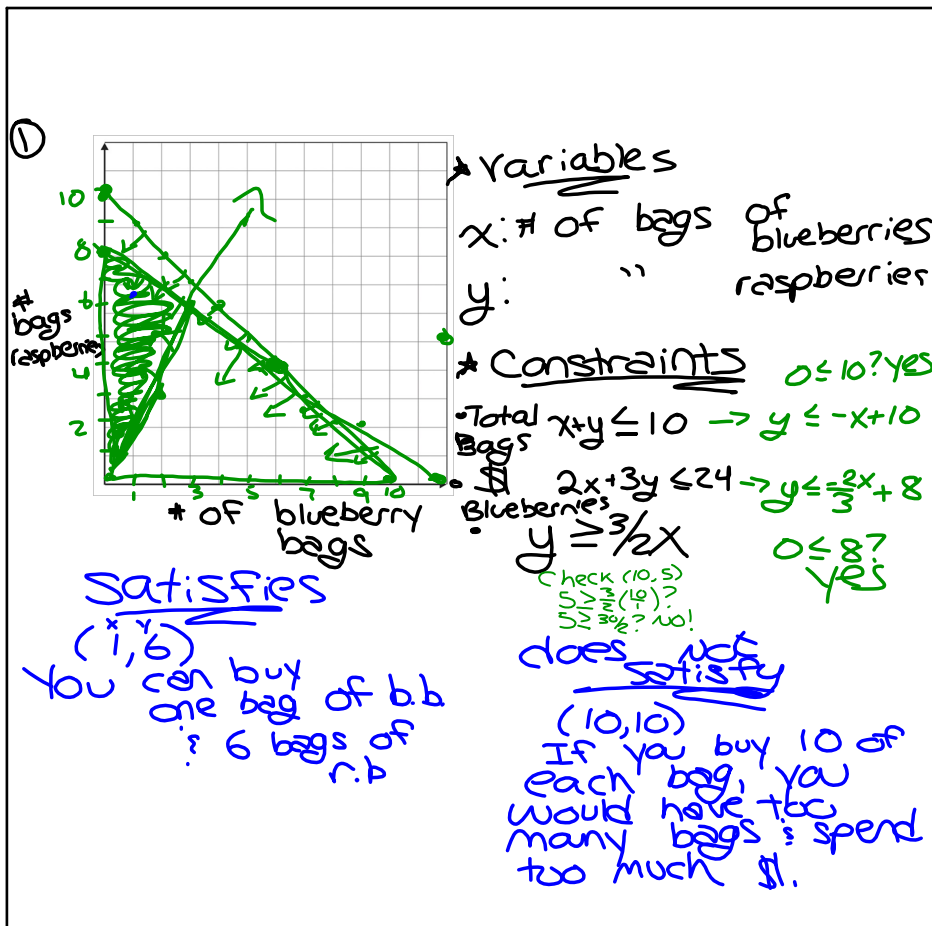 ①
10
8
6
4
2
# bags
raspberries
1 3 5 7 9 10
# of blueberry
bags
* Variables
x: # of bags of
blueberries
y: " raspberries
* Constraints
0 ≤ 10? yes
• Total
Bags
x+y ≤ 10 → y ≤ -x+10
• $ 2x+3y ≤ 24 → y ≤ -2/3x + 8
Blueberries
• y ≥ 3/2x
0 ≤ 8?
yes
Check (10,5)
5 ≥ 3/2(10/1)?
5 ≥ 30/2? NO!
Satisfies
x y
(1,6)
You can buy
one bag of b.b.
& 6 bags of
r.b
does not
satisfy
(10,10)
If you buy 10 of
each bag, you
would have too
many bags & spend
too much $.